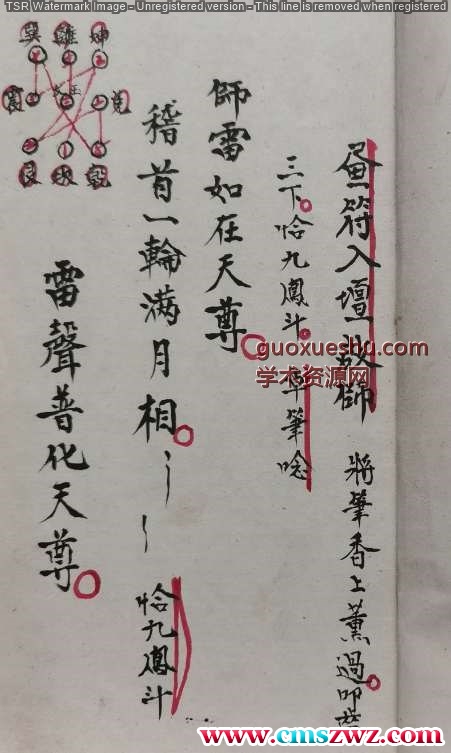 TSR Watermark Image - Unregistered version - This line is removed when registered
符入壇啟師 將筆香上薰過叩齒
三下。恰九鳳斗。草筆唸
師雷如在天尊。
稽首一輪滿月相。
恰九鳳斗
雷聲普化天尊。
巽 離 坤
震 兌
艮 坎 乾
guoxueshu.com
学术资源网
www.cmszwz.com